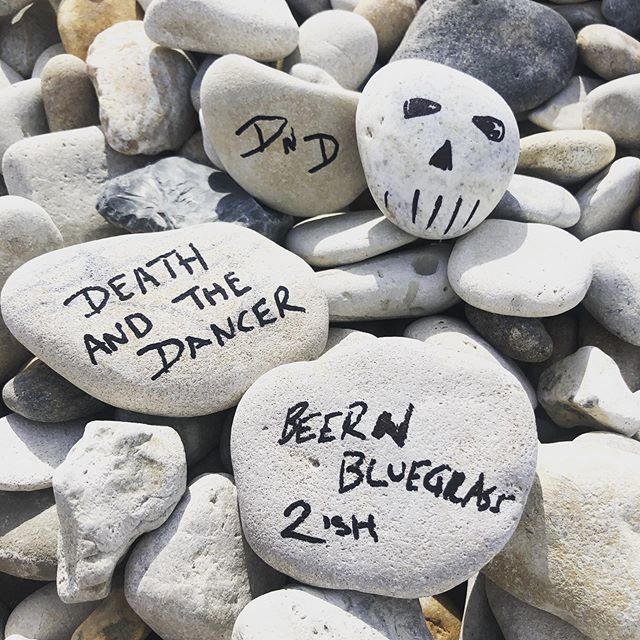 DND
DEATH
AND THE
DANCER
BEER N
BLUEGRASS
2ISH